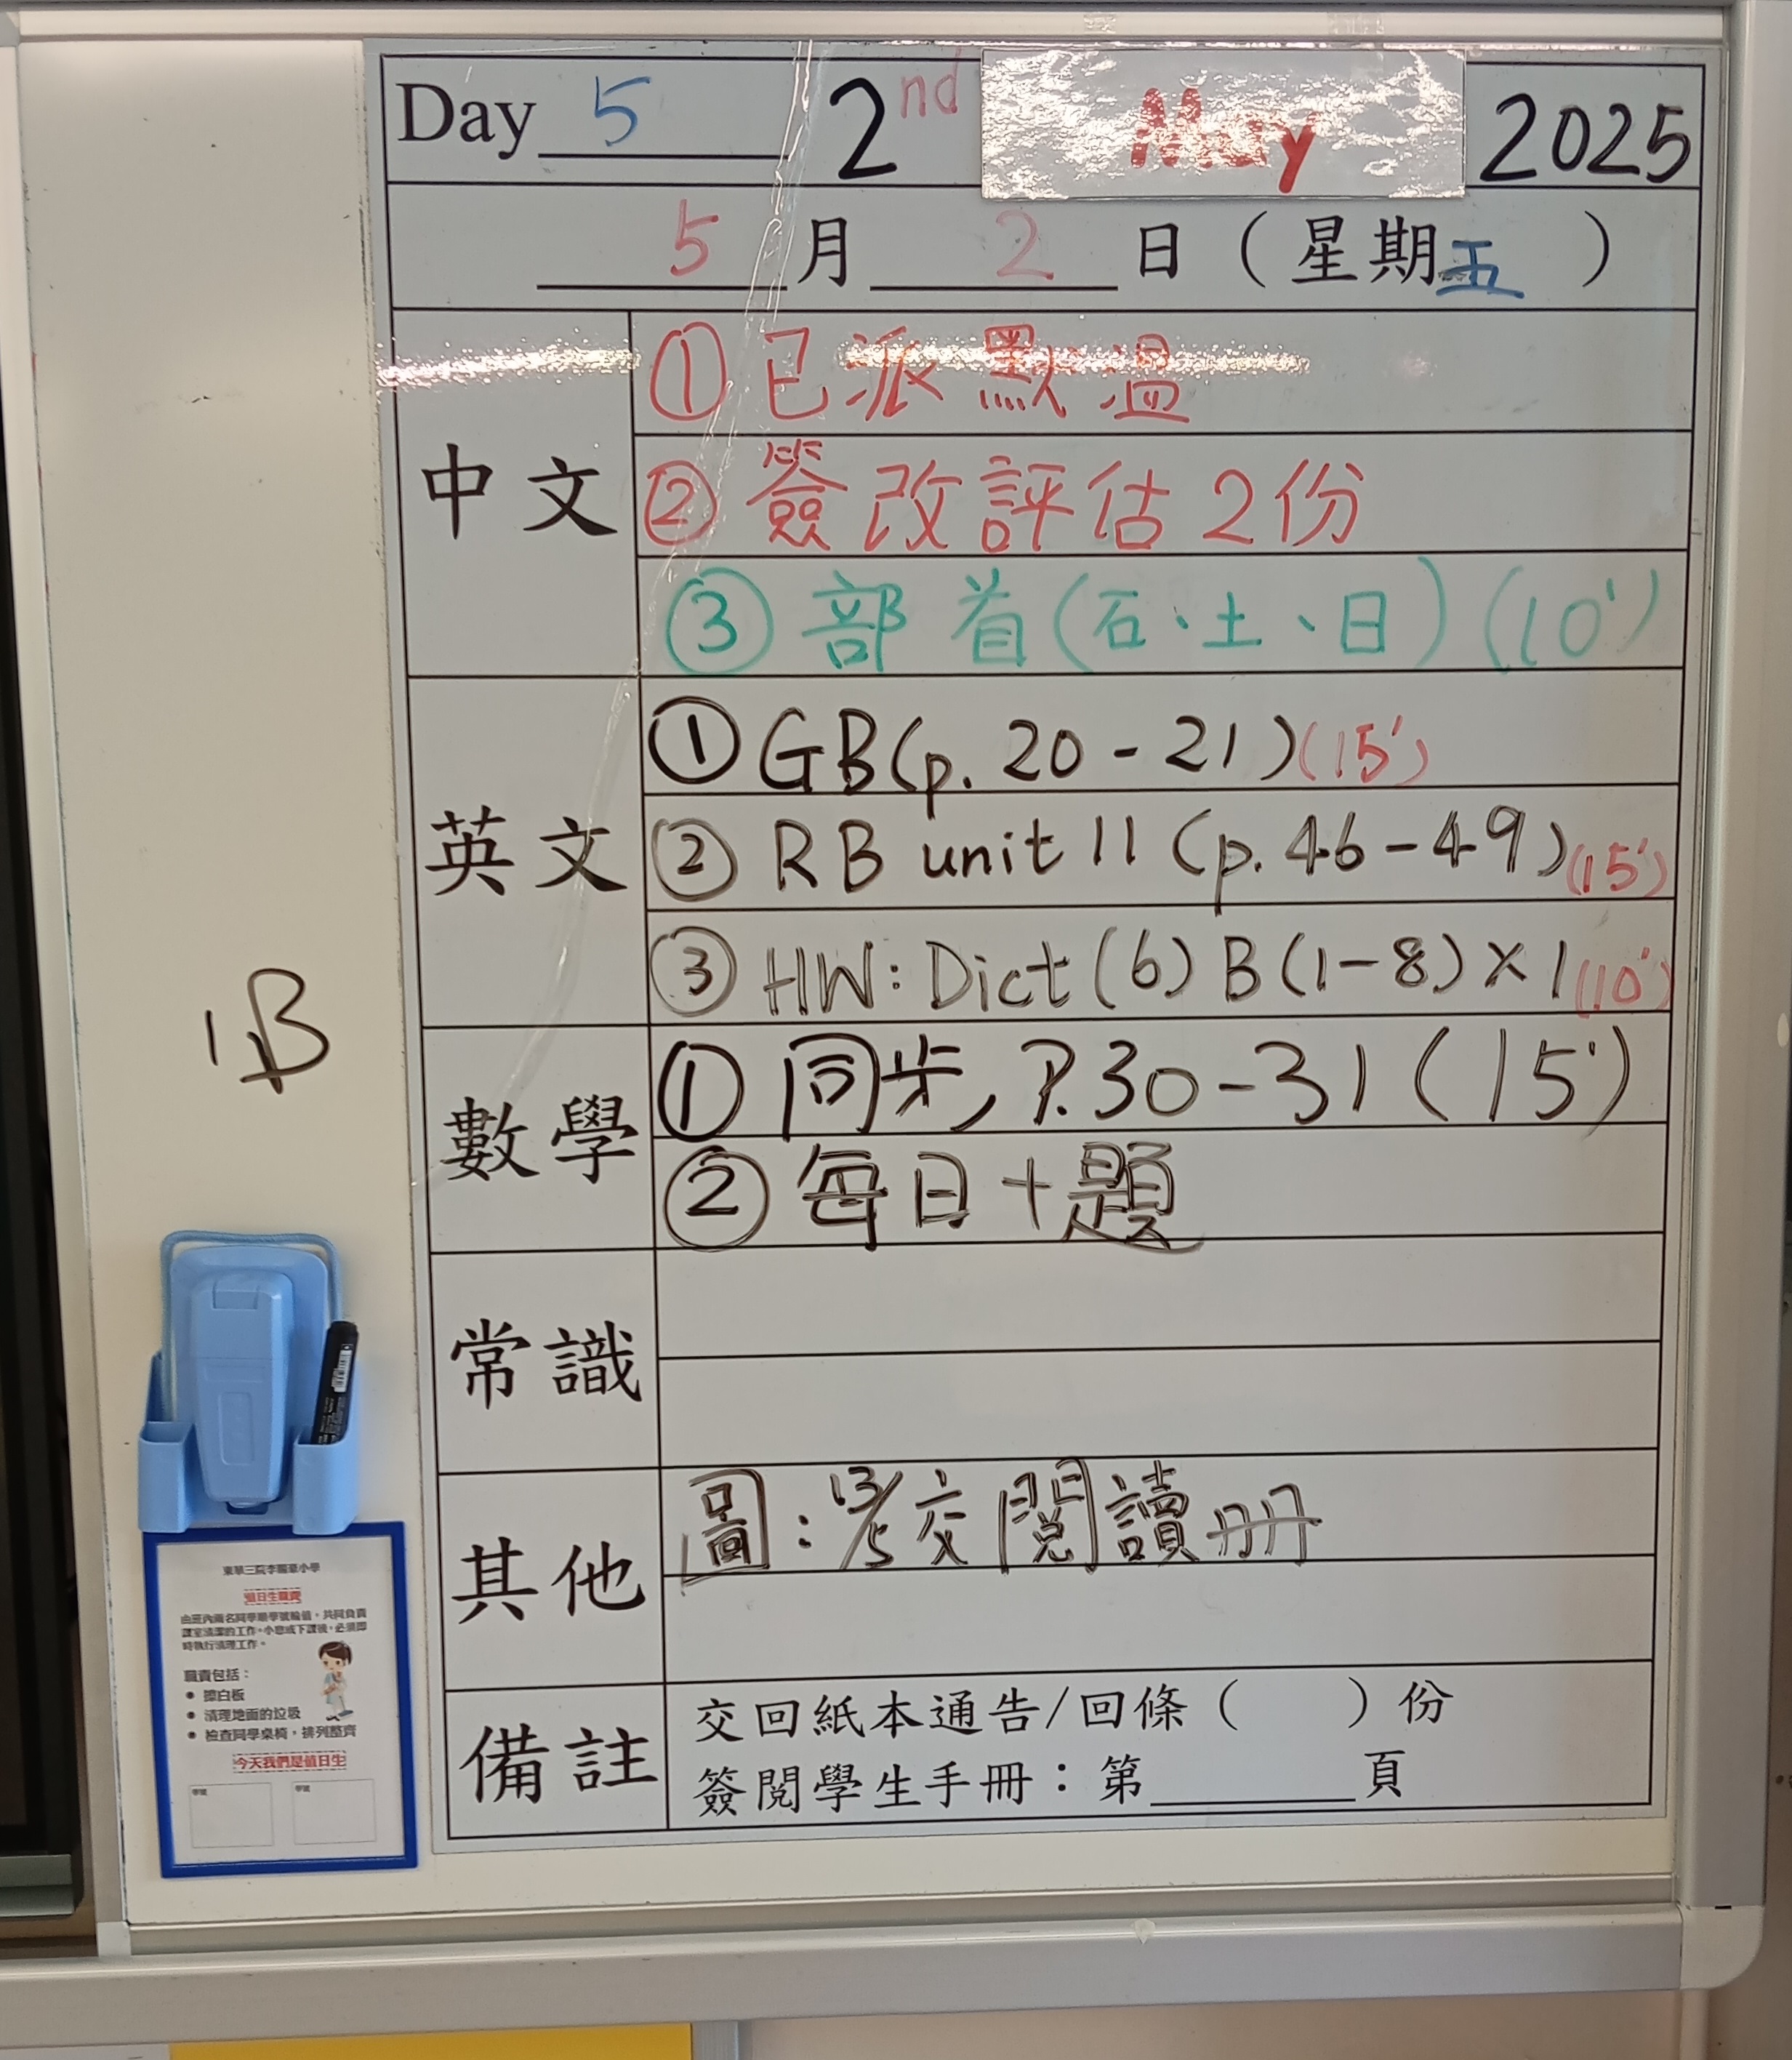 Day 5 2nd May 2025
5月2日（星期五）
中文
①已派默溫
②簽改評估2份
③部首(石、土、日)(10')
英文
①GB(p.20-21)(15')
②RB unit 11 (p.46-49)(15')
③HW:Dict(6)B(1-8)×1(10')
數學
①同步,P.30-31(15')
②每日十題
常識
其他
圖:13/5交閱讀冊
備註
交回紙本通告/回條（ ）份
簽閱學生手冊：第______頁
1B
東華三院李賜豪小學
值日生職責
由班內兩名同學順學號輪值，共同負責
課室清潔的工作。小息或下課後，必須即
時執行清理工作。
職責包括：
● 擦白板
● 清理地面的垃圾
● 檢查同學桌椅，排列整齊
今天我們是值日生
學號 學號